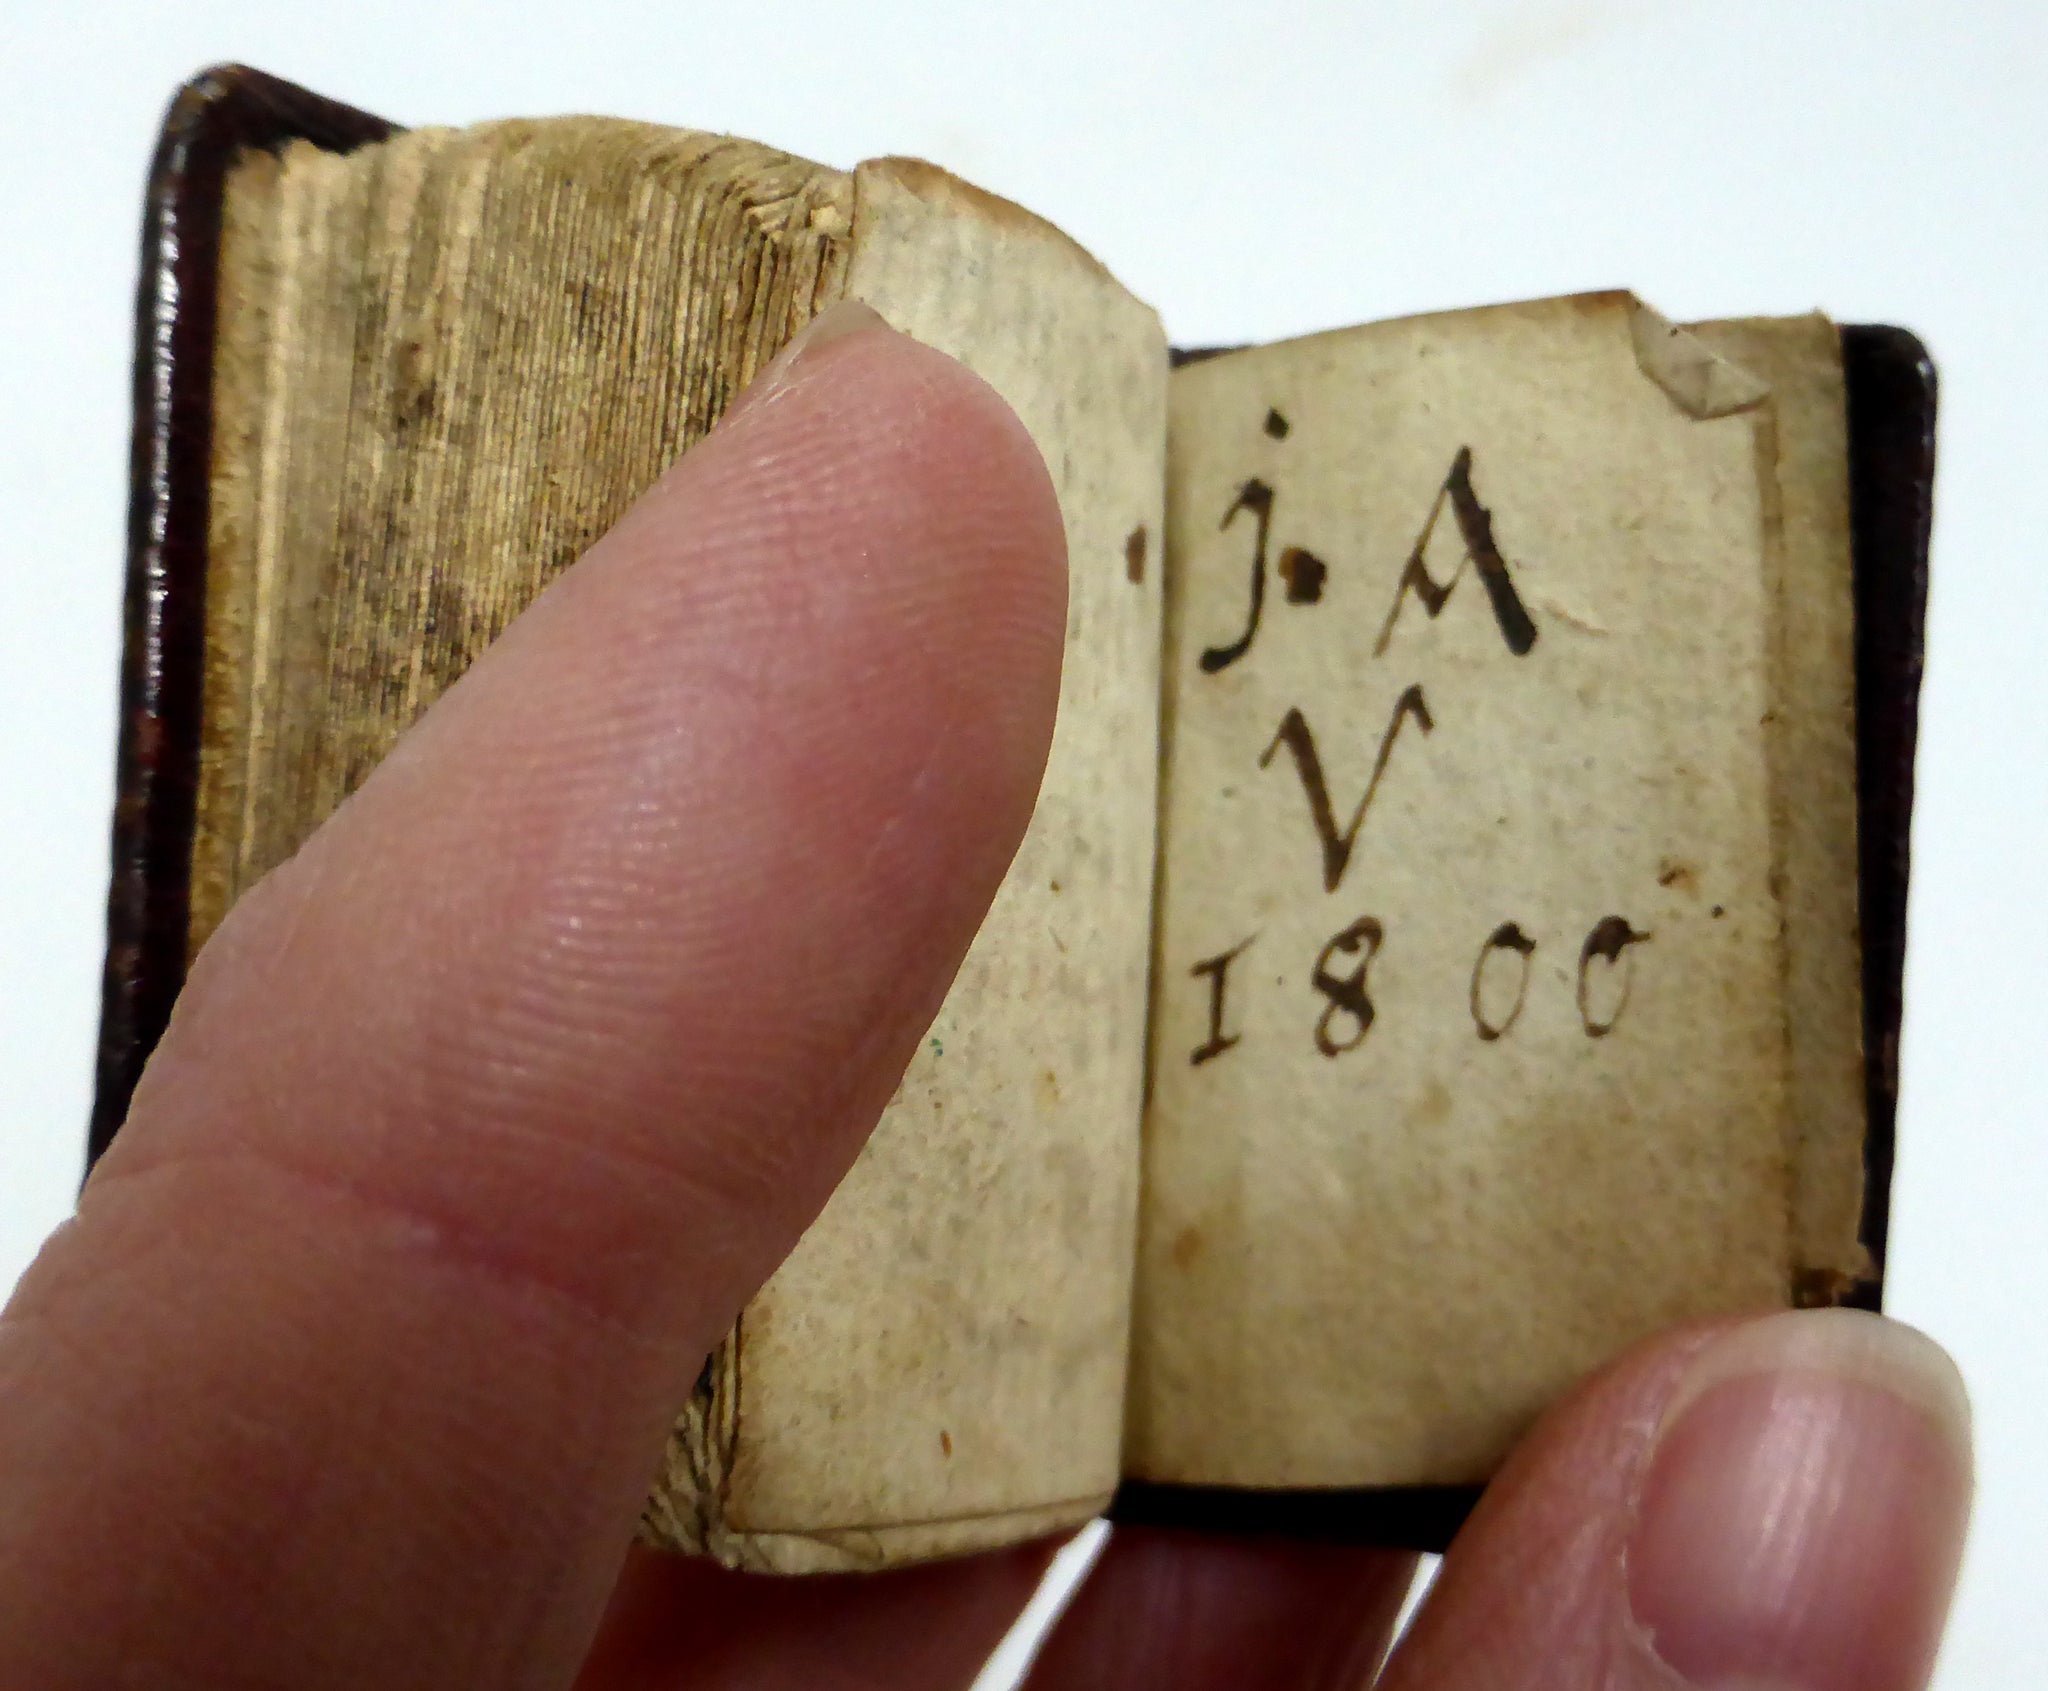 j. A
V
1800